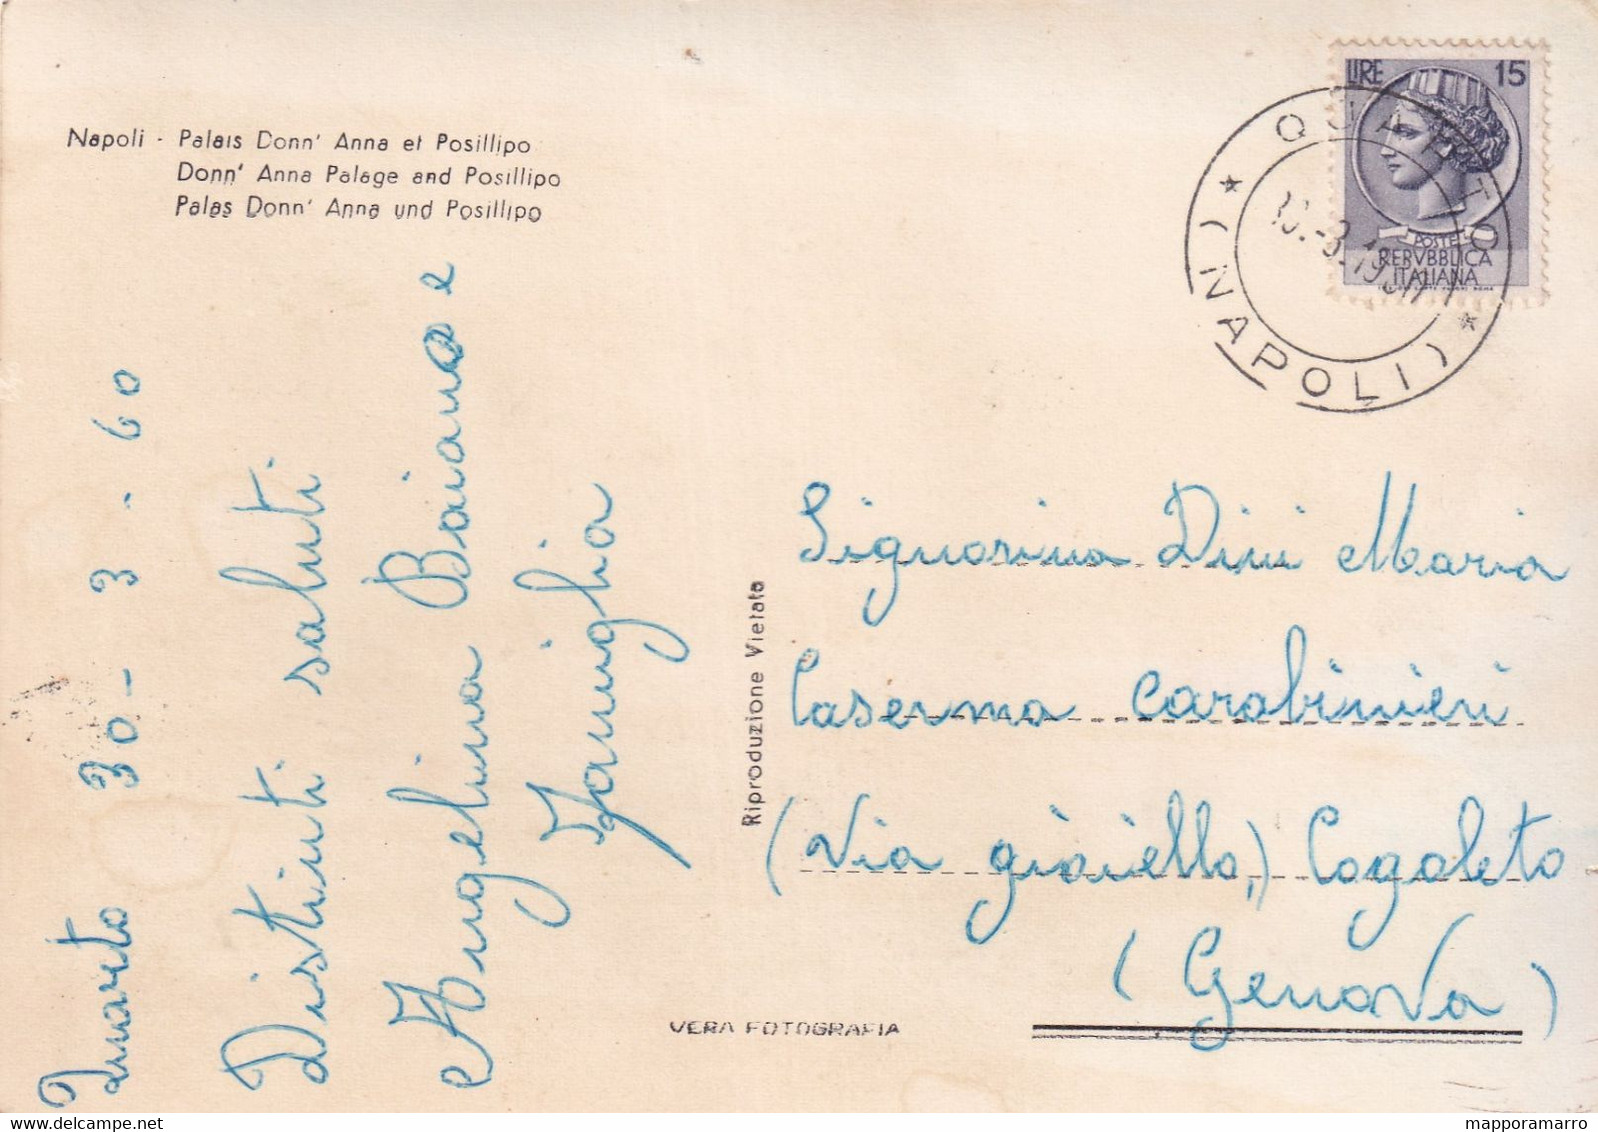 Napoli - Palais Donn' Anna et Posillipo
Donn' Anna Palage and Posillipo
Palas Donn' Anna und Posillipo
LIRE 15
POSTE
REPVBBLICA
ITALIANA
QUARTO
(NAPOLI)
Quarto 30-3-60
Distinti saluti
Angelina Baiano e
e Famiglia
Riproduzione Vietata
Signorina Dini Maria
Caserma Carabinieri
(Via gioiello,) Cogoleto
(Genova)
VERA FOTOGRAFIA
delcampe.net
mapporamarro